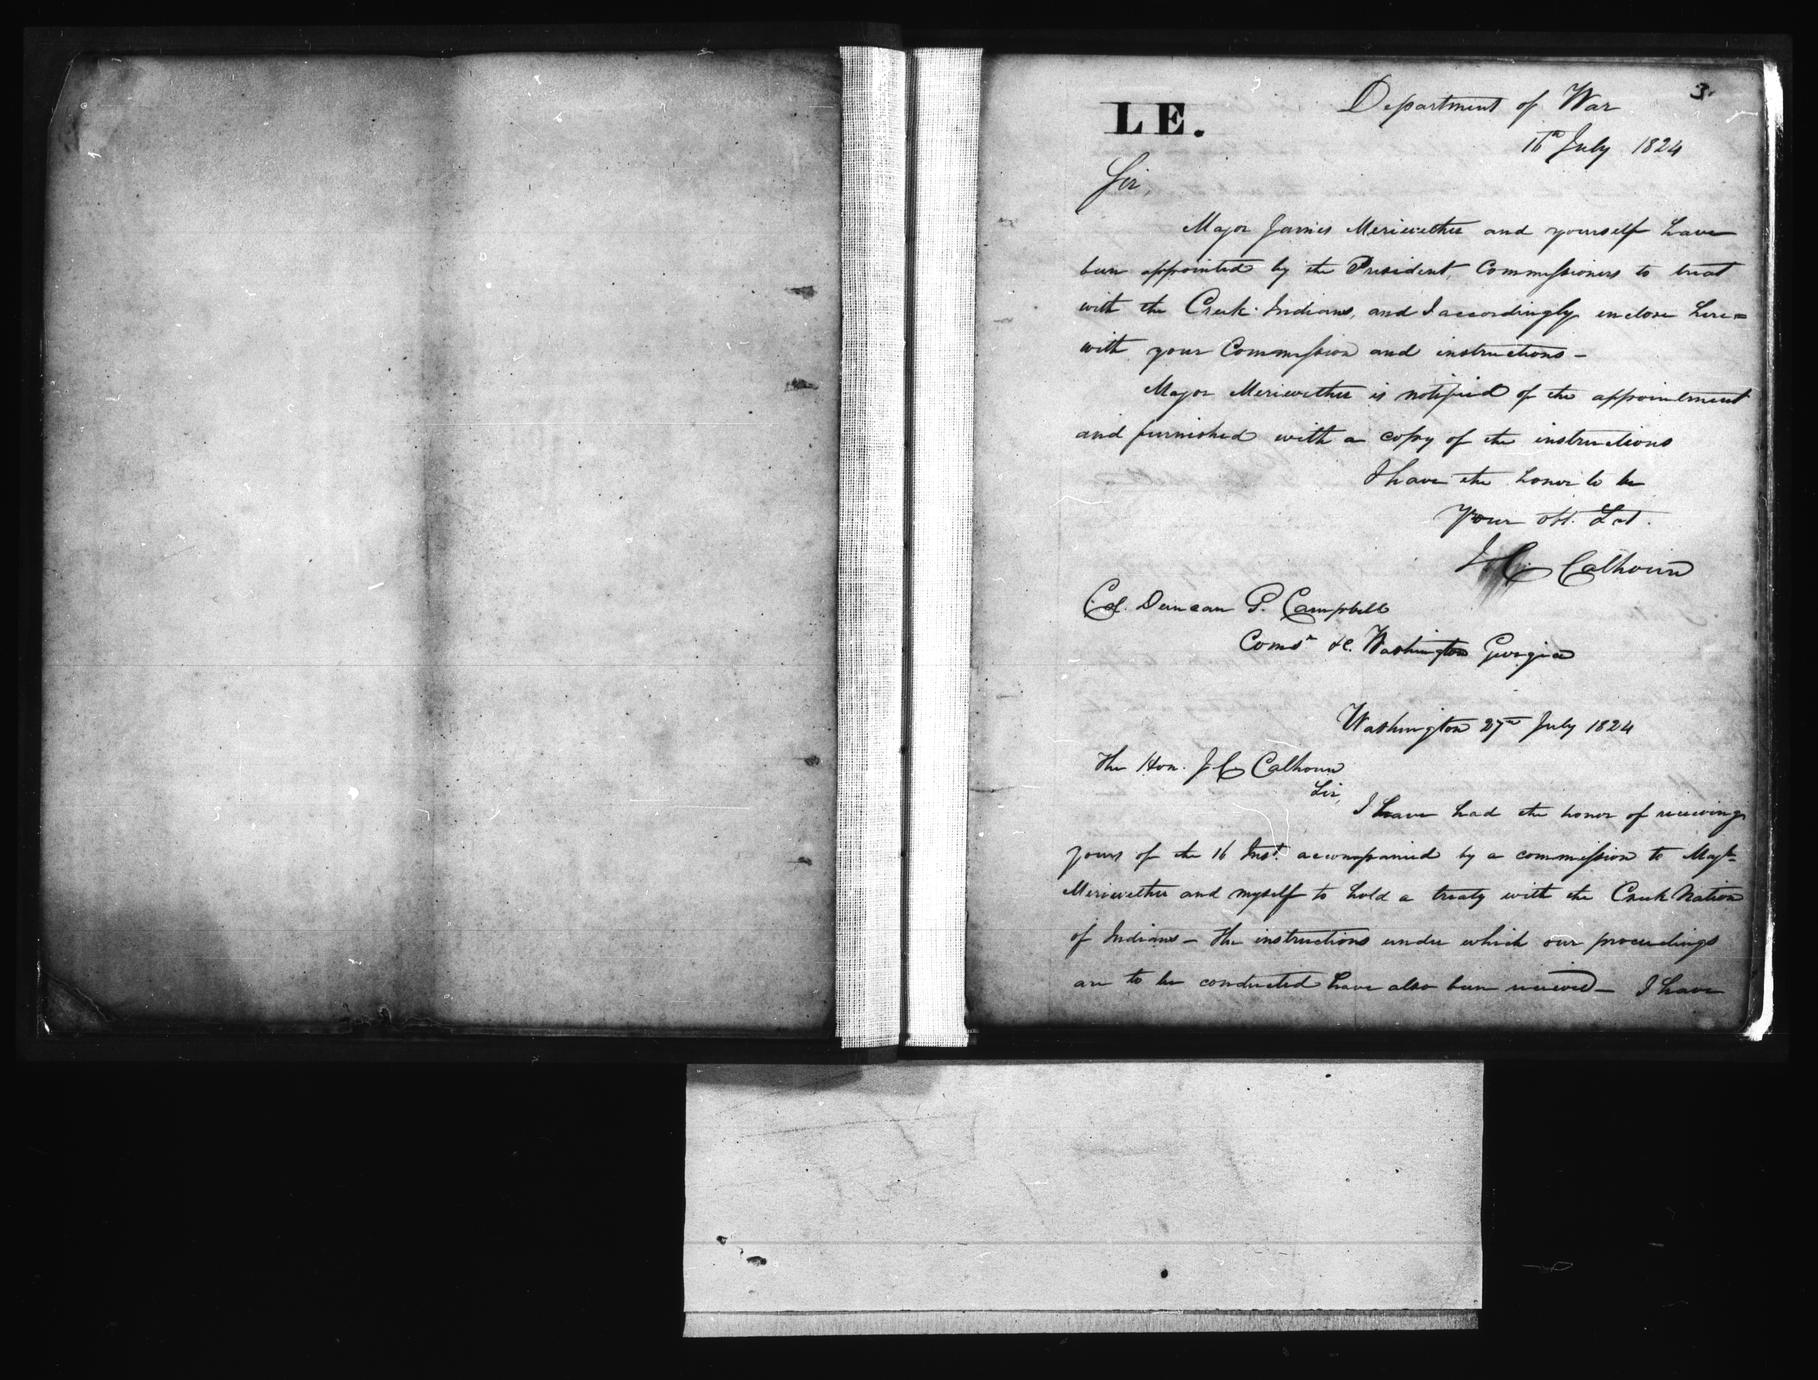 3.
LE.
Department of War
16th July 1824
Sir,
Major James Meriwether and yourself have
been appointed by the President, Commissioners to treat
with the Creek Indians, and I accordingly enclose here=
with your Commission and instructions —
Major Meriwether is notified of the appointment
and furnished with a copy of the instructions
I have the honor to be
Your obt. Svt.
J. C. Calhoun
Col. Duncan G. Campbell
Comr &c. Washington Georgia
Washington 27th July 1824
The Hon. J C Calhoun
Sir,
I have had the honor of receiving
yours of the 16 Inst. accompanied by a commission to Majr
Meriwether and myself to hold a treaty with the Creek Nation
of Indians — The instructions under which our proceedings
are to be conducted have also been received — I have